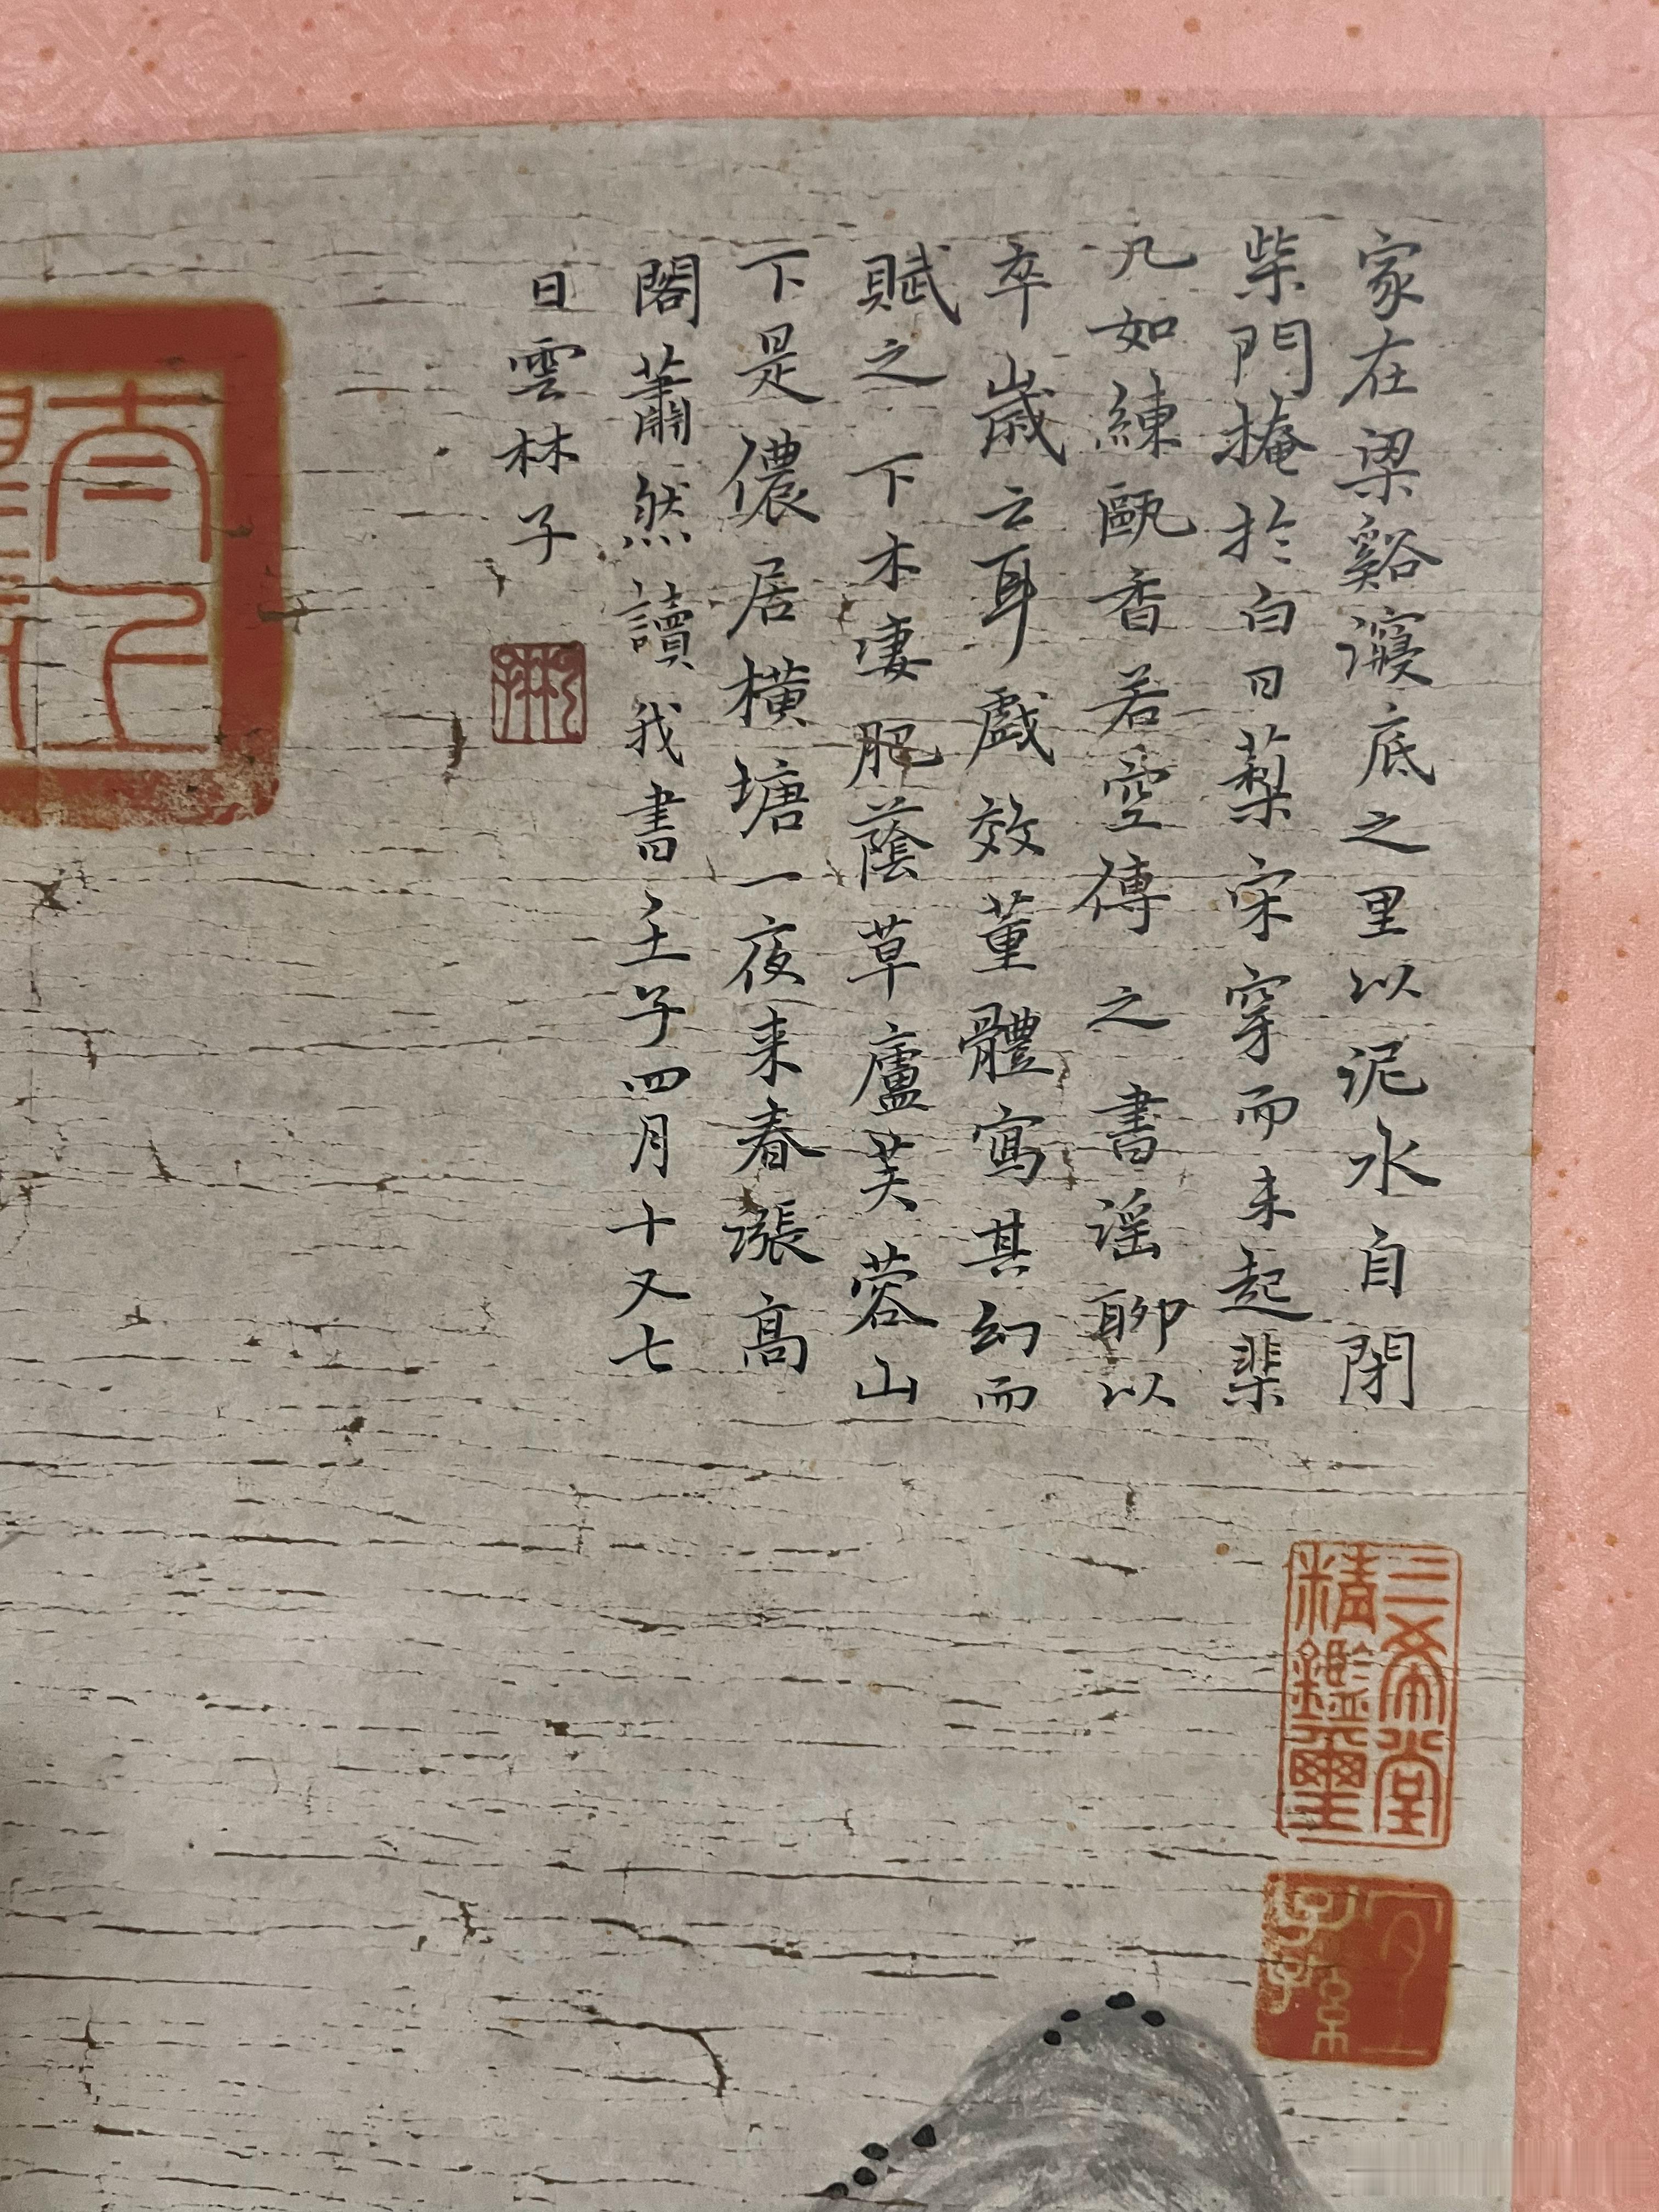 家在梁谿濅底之里以泥水自閉
柴門掩於白日蔾宋穿而未起棐
几如練甌香若空傳之書謡聊以
卒歲云耳戲效董體寫其幻而
賦之下木凄肥蔭草廬芙蓉山
下是儂居橫塘一夜来春漲高
閣蕭然讀我書壬子四月十又七
日雲林子
三希堂
精鑑璽
子孫